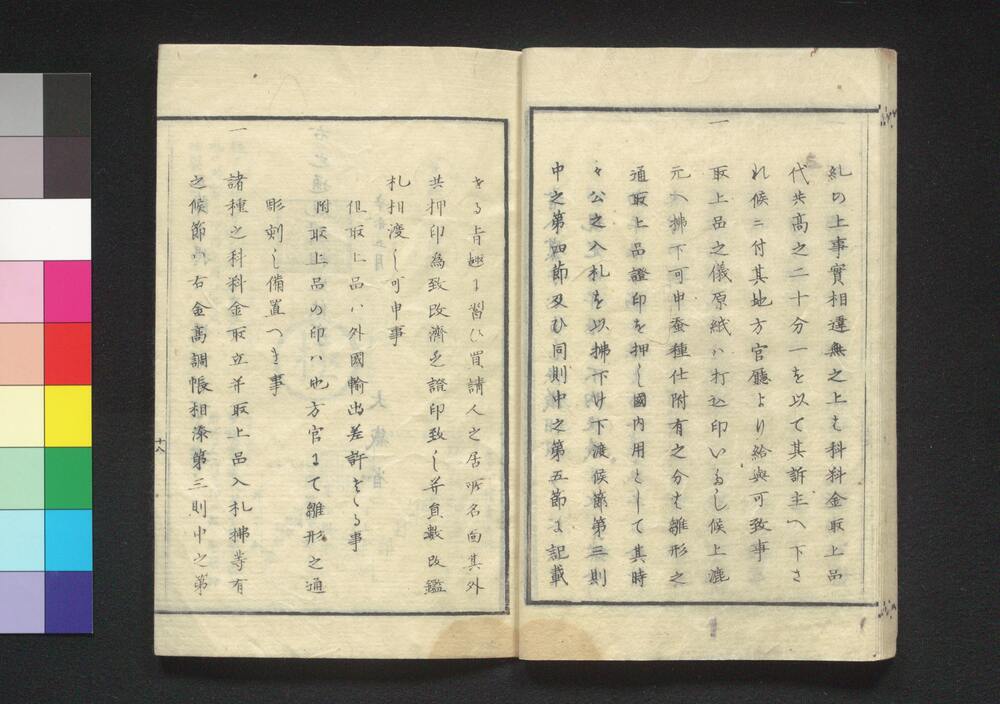 糺の上事實相違無之上も科料金取上品
代共高之二十分一を以て其訴主へ下さ
れ候ニ付其地方官廳より給與可致事
一
取上品之儀原紙ハ打込印いたし候上漉
元へ拂下可申蚕種仕附有之分も雛形之
通取上品證印を押し國内用として其時
々公之入札を以拂下ケ下渡候節第三則
中之第四節及ひ同則中之第五節に記載
せる旨趣に習ひ買請人之居所名面其外
共押印為致改濟之證印致し并員數改鑑
札相渡し可申事
但取上品ハ外國輸出差許さゝる事
附取上品の印ハ地方官にて雛形之通
彫刻し備置へき事
一
諸種之科料金取立并取上品入札拂等有
之候節ハ右金高調帳相添第三則中之第
十八